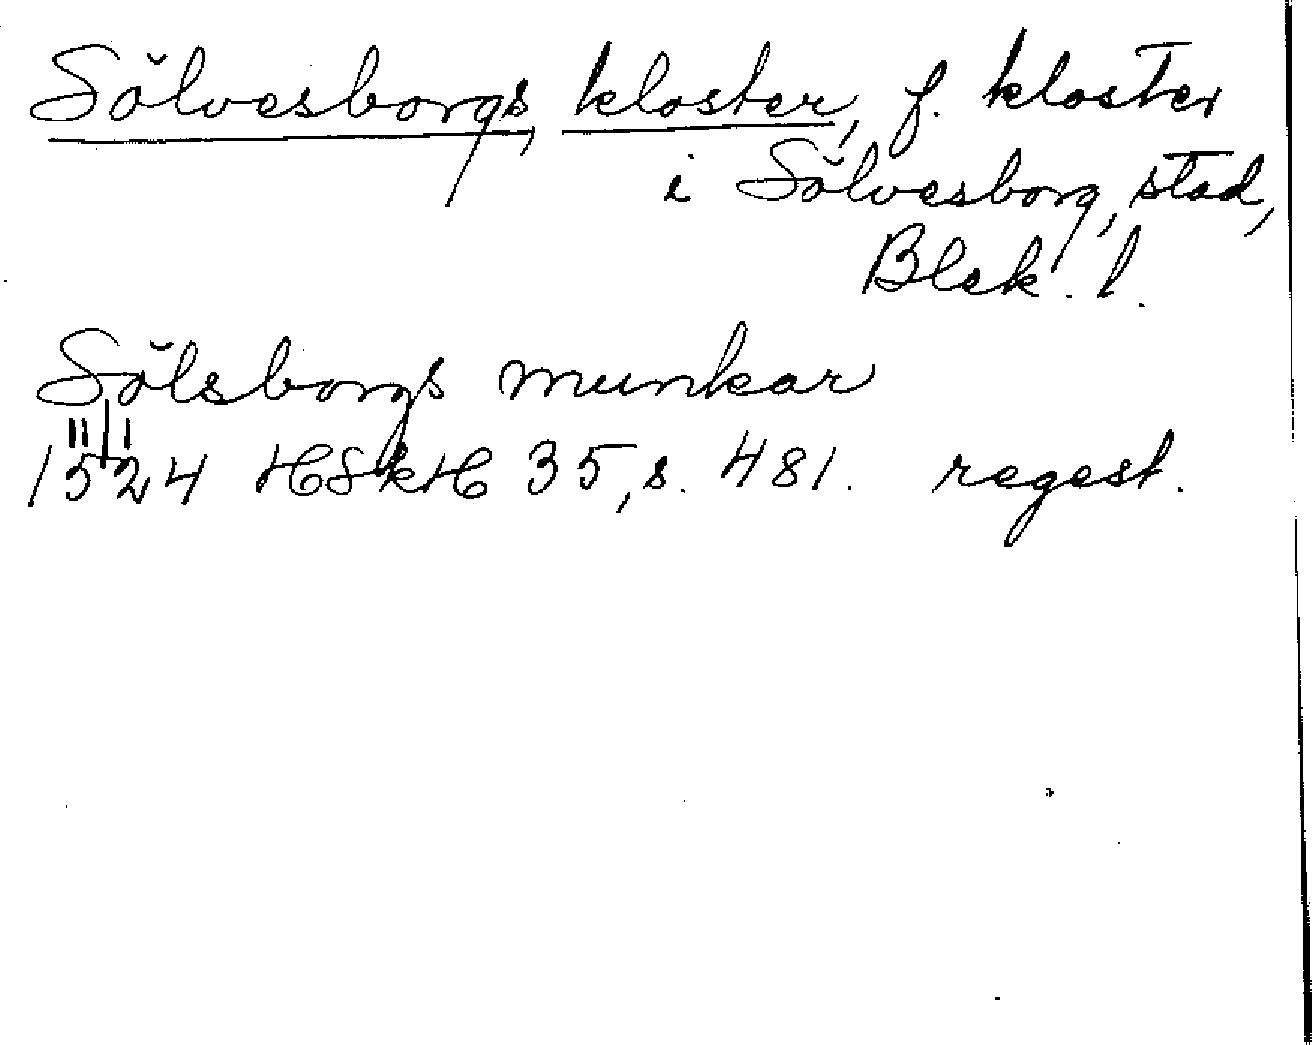 Sölvesborgs kloster, f. kloster
i Sölvesborg, stad,
Blek. l.
Sölsborgs munkar
1524 HSkH 35, s. 481. regest.